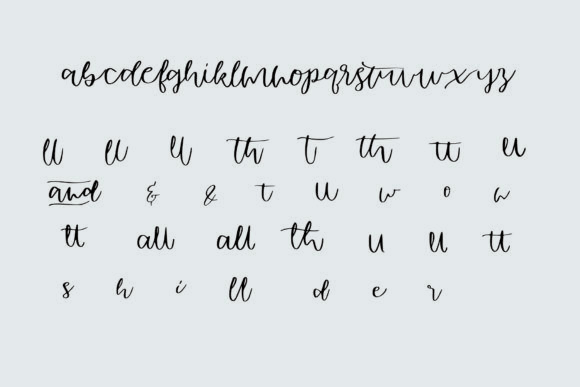 abcdefghiklmnopqrstuvwxyz
ll ll ll th t th tt ll
and & & t u w o w
tt all all th u ll tt
s h i ll d e r